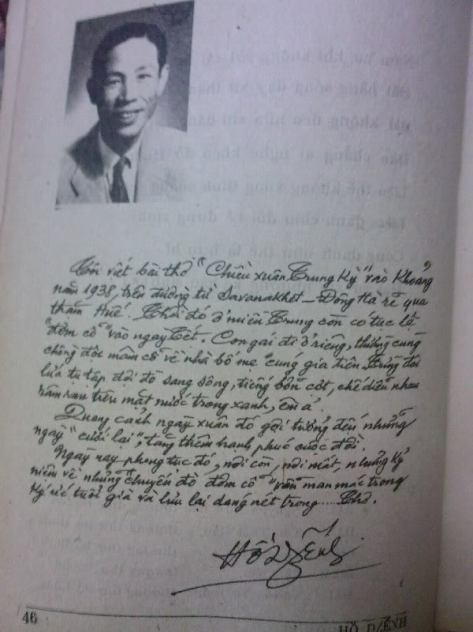 Tôi viết bài thơ "Chiều xuân Trung Kỳ" vào khoảng
năm 1938, trên đường từ Savanakhet – Đông Hà rẽ qua
thăm Huế. Thuở đó ở miền Trung còn có tục lệ
"đêm cỗ" vào ngày Tết. Con gái đi ở riêng, thường cùng
chồng đội mâm cỗ về nhà bố mẹ cúng gia tiên. Từng đôi
lứa tụ tập đợi đò sang sông, tiếng bỡn cợt, chế diễu nhau
râm ran trên mặt nước trong xanh, êm ả.
Quang cảnh ngày xuân đó gợi tưởng đến những
ngày "cưới lại", tăng thêm hạnh phúc cuộc đời.
Ngày nay phong tục đó, nơi còn, nơi mất, nhưng kỷ
niệm về những "chuyến đò đêm cỗ" vẫn man mác trong
ký ức tuổi già và lưu lại dáng nét trong..... Thơ.
HỒ DZẾNH
46
HỒ DZẾNH